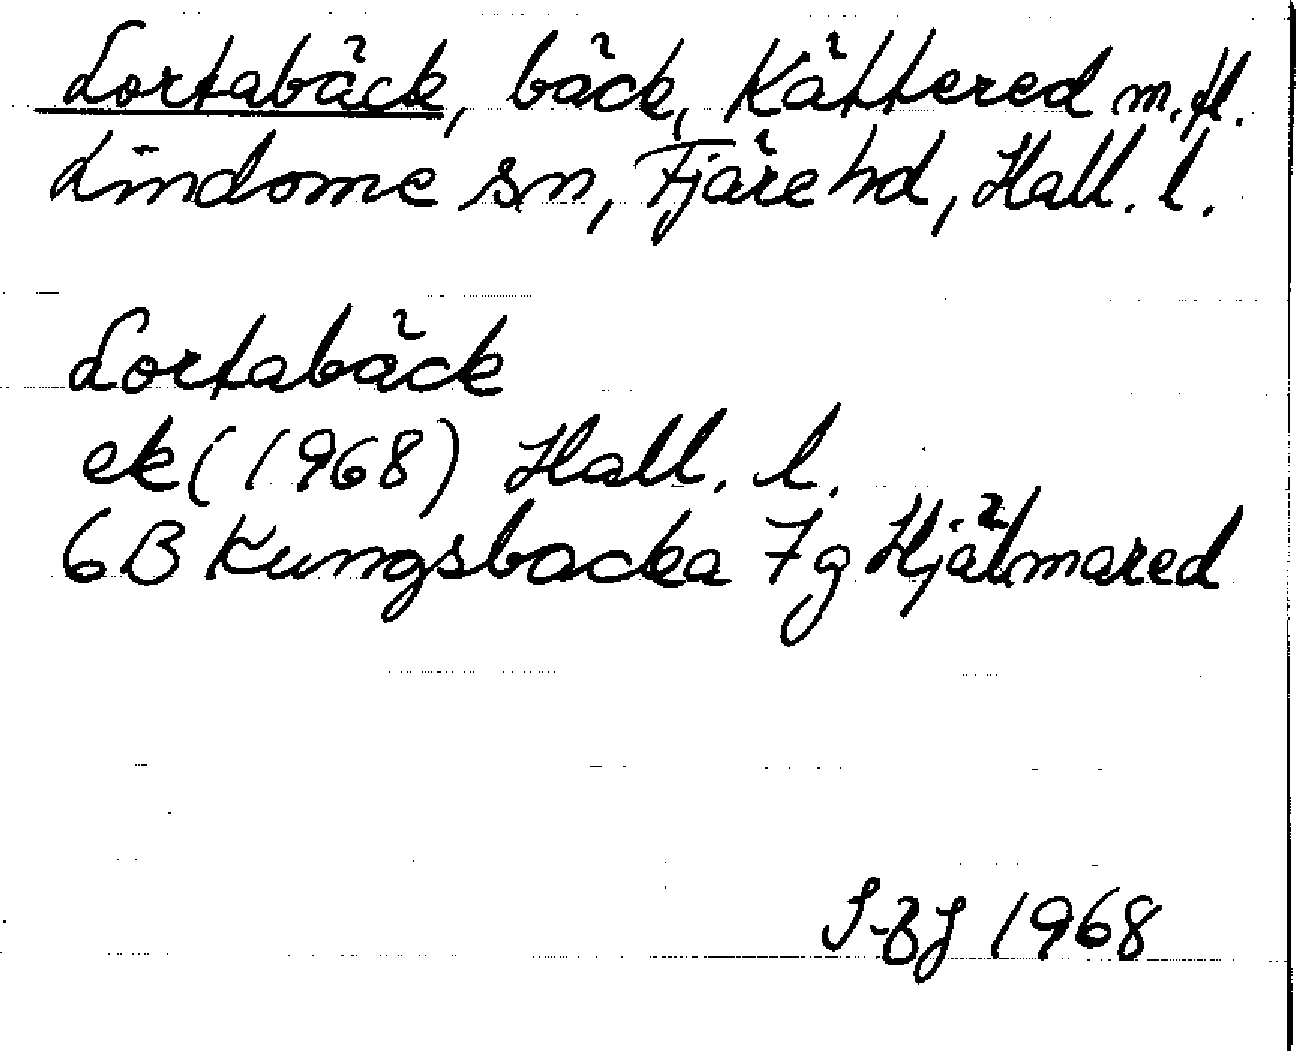 Lortabäck, bäck, Kättered m.fl.
Lindome sn, Fjäre hd, Hall. l.
Lortabäck
ek (1968) Hall. l.
6B Kungsbacka 7g Hjälmared
1968